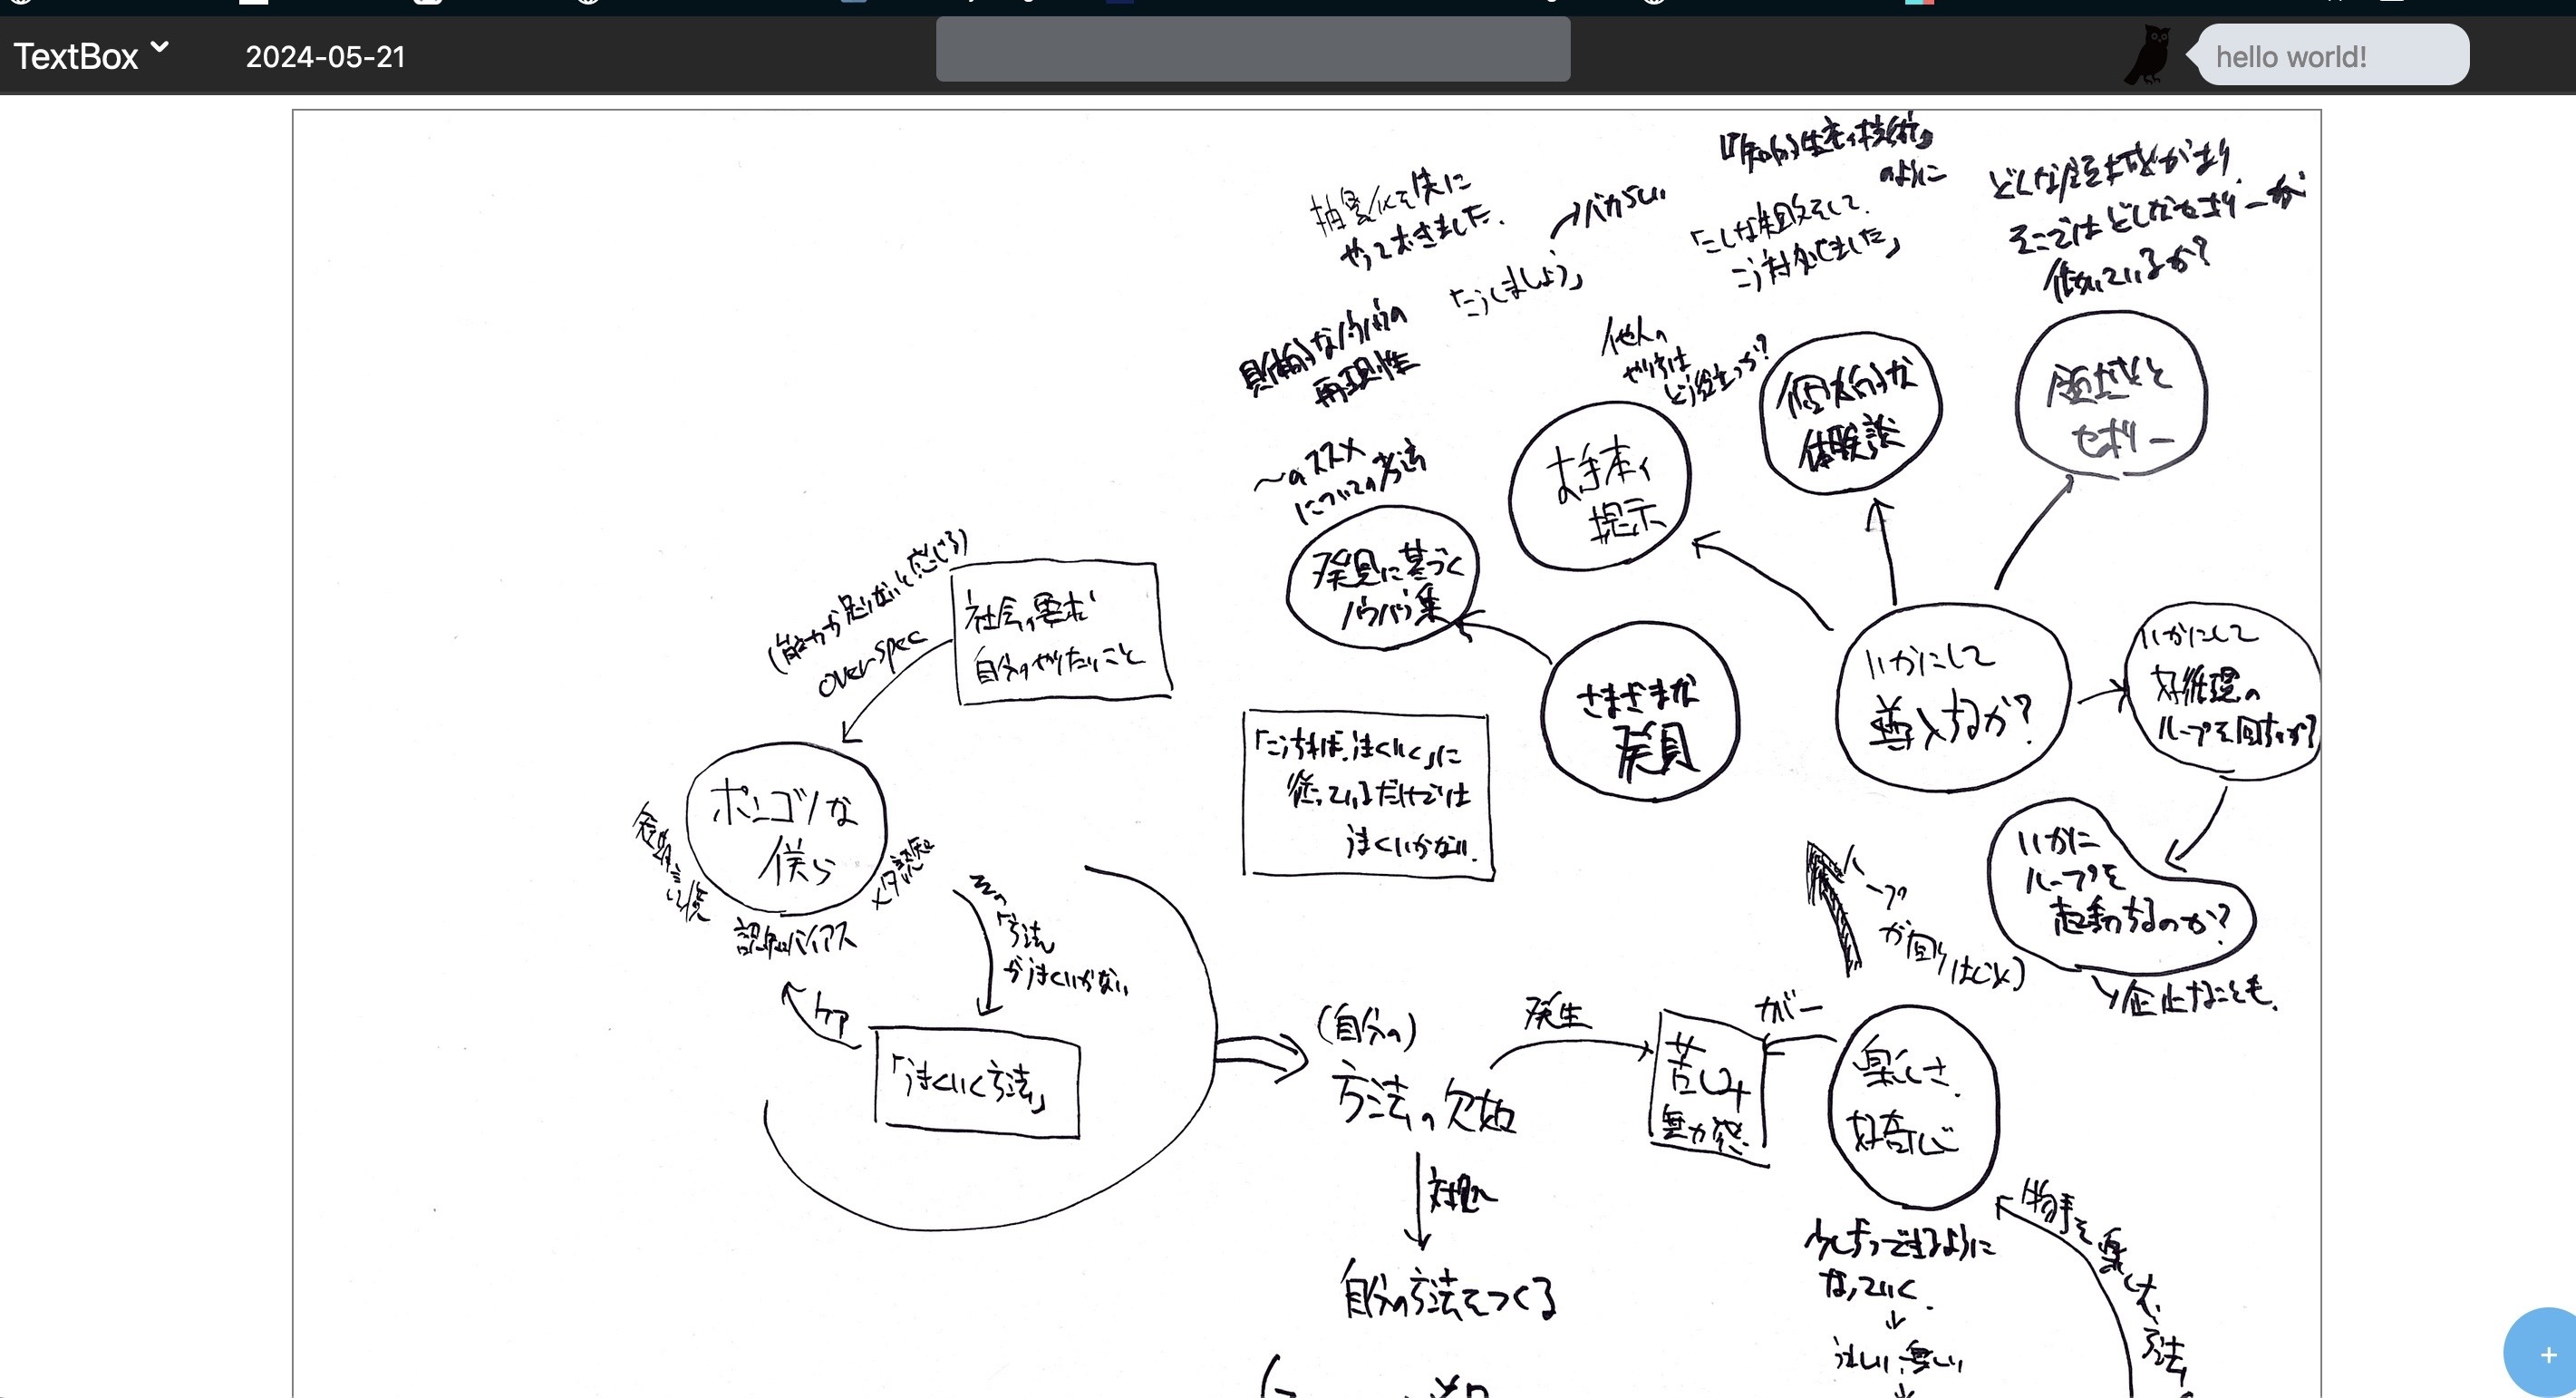 TextBox
2024-05-21
hello world!
『知的生産の技術』
のように
「こんな失敗をして、
こう対処しました」
そこではどんなセオリーが
働いているか?
やっておきました。
→バカらしい
「こうしましょう」
具体的な
再現性
他人の
やり方は
どう役立つか?
個人的な
体験談
セオリー
お手本の
提示
〜のススメ
についての方法
発見に基づく
ノウハウ集
(能力が足りないと感じる)
over spec
社会の要求
自分のやりたいこと
さまざまな
発見
いかにして
導入するか?
いかにして
好循環の
ループを回すか?
「こうすれば、うまくいく」に
従っているだけでは
うまくいかない。
ポンコツな
僕ら
メタ認知
認知バイアス
その
方法
がうまくいかない
ケア
「うまくいく方法」
いかに
ループを
起動するのか?
ループ
が回りはじめる
(自分の)
方法の欠如
発生
苦しみ
無力感
ガバー
楽しさ
好奇心
対処
自分の方法をつくる
少しずつできるように
なっていく
うれしい、楽しい
方法
+